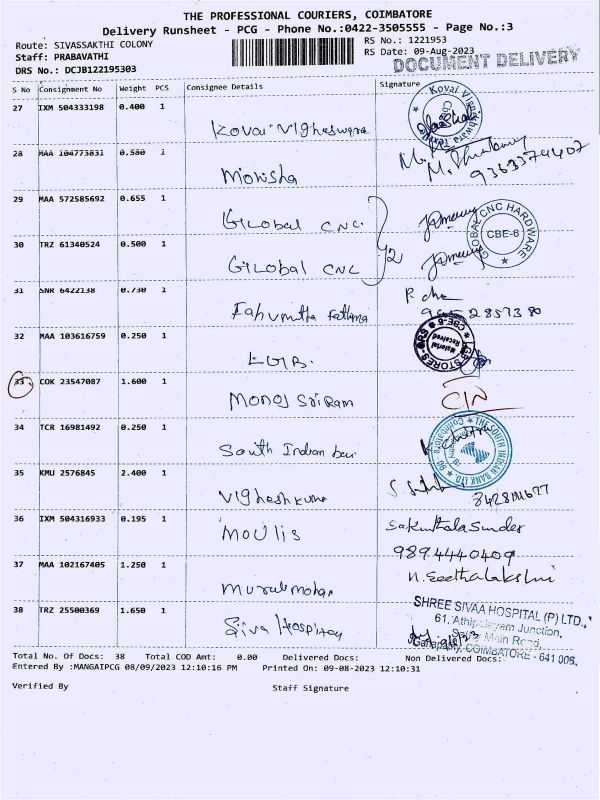 THE PROFESSIONAL COURIERS, COIMBATORE
Delivery Runsheet - PCG - Phone No.:0422-3505555 - Page No.:3
Route: SIVASSAKTHI COLONY
RS No.: 1221953
Staff: PRABAVATHI
RS Date: 09-Aug-2023
DOCUMENT DELIVERY
DRS No.: DCJB122195303
S No Consignment No Weight PCS Consignee Details Signature
27 IXM 504333198 0.400 1
Kovai Vigheswara
28 MAA 104773831 0.580 1
Monisha
9363374407
29 MAA 572585692 0.655 1
Global CNC
GLOBAL CNC HARDWARE
CBE-6
30 TRZ 61340524 0.500 1
Global CNC
31 SNR 6422138 0.730 1
Fathima
32 MAA 103616759 0.250 1
Material Received
STORES
CBE-6
33 COK 23547087 1.600 1
Manoj Sriram
34 TCR 16981492 0.250 1
South Indian
THE SOUTH INDIAN BANK LTD.
35 KMU 2576845 2.400 1
Vighesh kumar
36 IXM 504316933 0.195 1
Moulis
Sakunthala Sundar
9894440409
37 MAA 102167405 1.250 1
Muralimohan
N. Seethalakshmi
38 TRZ 25500369 1.650 1
Siva Hospital
SHREE SIVAA HOSPITAL (P) LTD.,
61, Athipalayam Junction,
Main Road,
Ganapathy, COIMBATORE - 641 006.
Total No. Of Docs: 38 Total COD Amt: 0.00 Delivered Docs: Non Delivered Docs:
Entered By :MANGAIPCG 08/09/2023 12:10:16 PM Printed On: 09-08-2023 12:10:31
Verified By Staff Signature